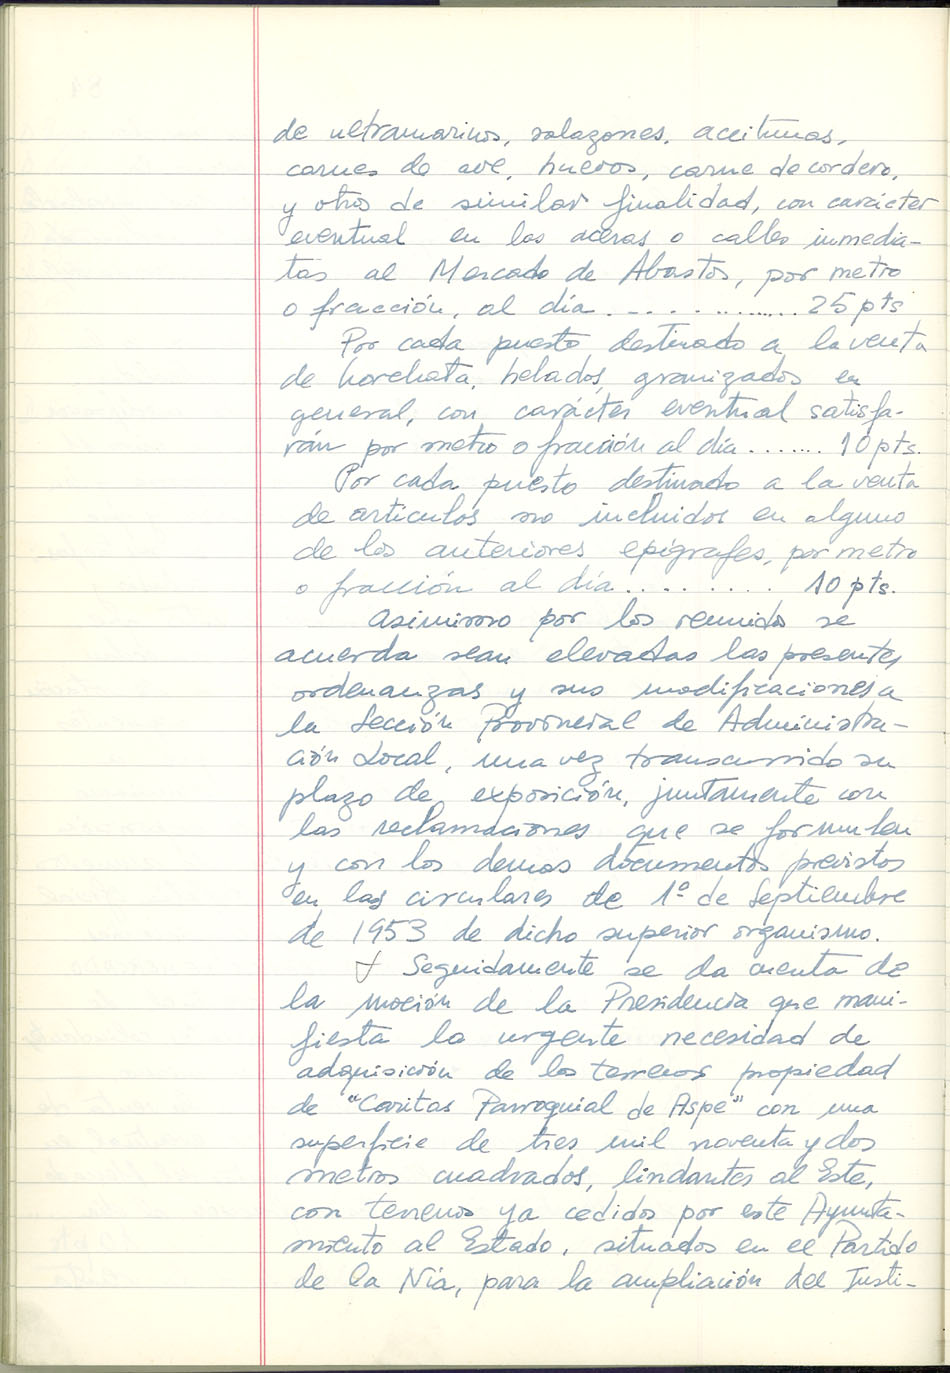 de ultramarinos, salazones, aceitunas,
carnes de ave, huevos, carne de cordero,
y otros de similar finalidad, con carácter
eventual en las aceras o calles inmedia-
tas al Mercado de Abastos, por metro
o fracción, al día . . . . . ......... 25 pts
Por cada puesto destinado a la venta
de horchata, helados, granizados en
general, con carácter eventual satisfa-
rán por metro o fracción al día ....... 10 pts.
Por cada puesto destinado a la venta
de artículos no incluidos en alguno
de los anteriores epígrafes, por metro
o fracción al día . . . . . . . . . 10 pts.
Asimismo por los reunidos se
acuerda sean elevadas las presentes
ordenanzas y sus modificaciones a
la Sección Provincial de Administra-
ción Local, una vez transcurrido su
plazo de exposición, juntamente con
las reclamaciones que se formulen
y con los demas documentos previstos
en las circulares de 1º de Septiembre
de 1953 de dicho superior organismo.
Seguidamente se da cuenta de
la moción de la Presidencia que mani-
fiesta la urgente necesidad de
adquisición de los terrenos propiedad
de "Caritas Parroquial de Aspe" con una
superficie de tres mil noventa y dos
metros cuadrados, lindantes al Este,
con terrenos ya cedidos por este Ayunta-
miento al Estado, situados en el Partido
de la Nía, para la ampliación del Insti-